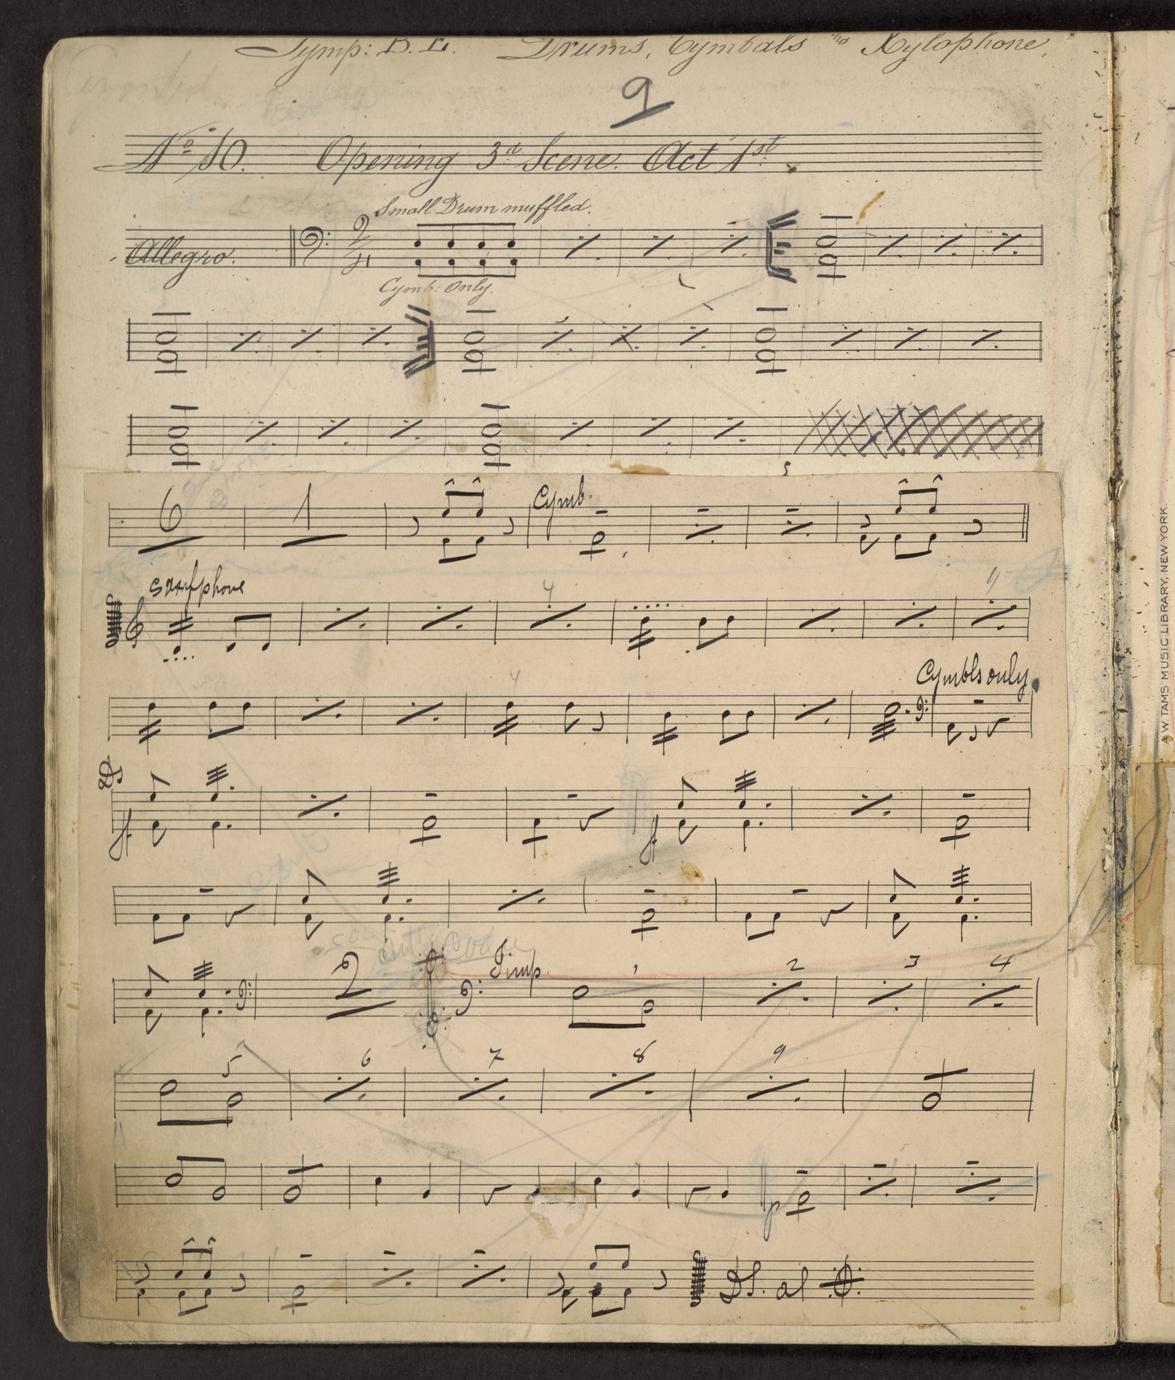 Tymp: B. E. Drums, Cymbals and Xylophone.
9
No 10. Opening 3d Scene. Act 1st.
Small Drum muffled.
Allegro.
Cymb: Only.
6 1 Cymb.
saxfphone
4 4
Cymbls only
4
ff ff
2 Timp. 1 2 3 4
5 6 7 8 9
p
DS. al
A.W. TAMS MUSIC LIBRARY, NEW YORK.